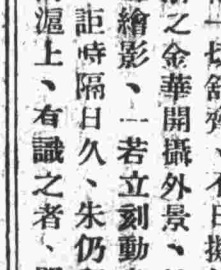 一切舒齊、不日攝
之金華開攝外景、
繪影、一若立刻動
詎時隔日久、朱仍
滬上、有識之者、